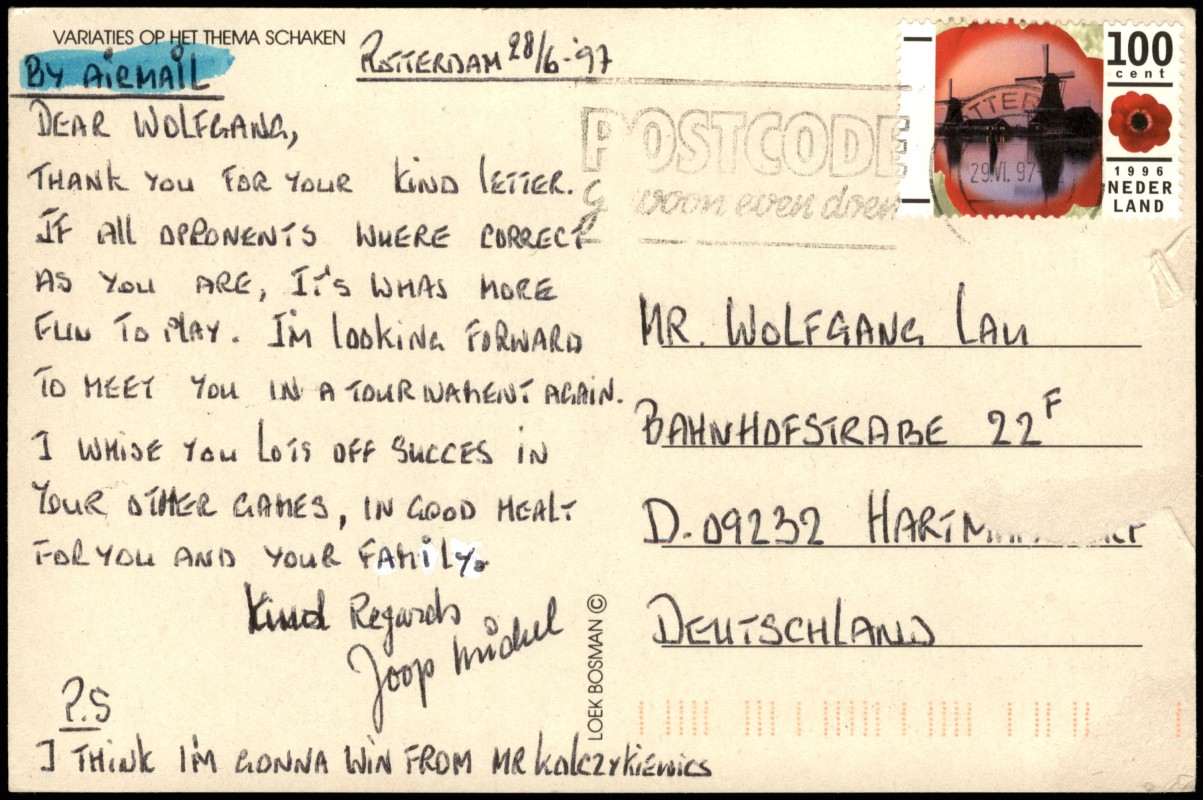 VARIATIES OP HET THEMA SCHAKEN
BY AIRMAIL
ROTTERDAM 28/6-'97
DEAR WOLFGANG,
THANK YOU FOR YOUR KIND LETTER.
IF ALL OPPONENTS WHERE CORRECT
AS YOU ARE, IT'S WHAS MORE
FUN TO PLAY. I'M LOOKING FORWARD
TO MEET YOU IN A TOURNAMENT AGAIN.
I WHISE YOU LOTS OFF SUCCES IN
YOUR OTHER GAMES, IN GOOD HEALT
FOR YOU AND YOUR FAMILY.
Kind Regards
Joop Michel
P.S
I THINK I'M GONNA WIN FROM MR KOLCZYKIEWICS
LOEK BOSMAN ©
POSTCODE
woon even doen
29.VI.97
100
cent
1996
NEDER
LAND
MR. WOLFGANG LAU
BAHNHOFSTRAßE 22F
D.09232
DEUTSCHLAND